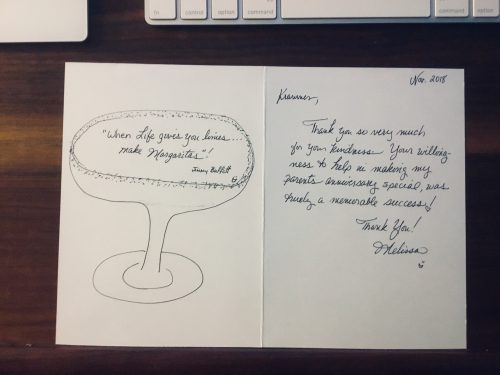 fn
control
option
command
option
"When Life gives you limes...
make Margaritas"!
Jimmy Buffett
Nov. 2018
Krammer,
Thank you so very much
for your kindness. Your willing-
ness to help in making my
parents anniversary special, was
truely a memorable success!
Thank You!
Melissa